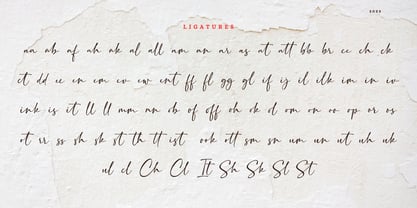 LIGATURES
2023
aa ab af ah ak al all am an ar as at att bb br cc ch ck
ct dd ee en em ev ew ewt ff fl gg gl if ij il ilk im in iv
ink is it ll ll mm an ob of off oh ok ol om on oo op or os
ot rr ss sh sk st th tt ist ook ott sm sn um un ut uh uk
ul cl Ch Cl It Sh Sk Sl St